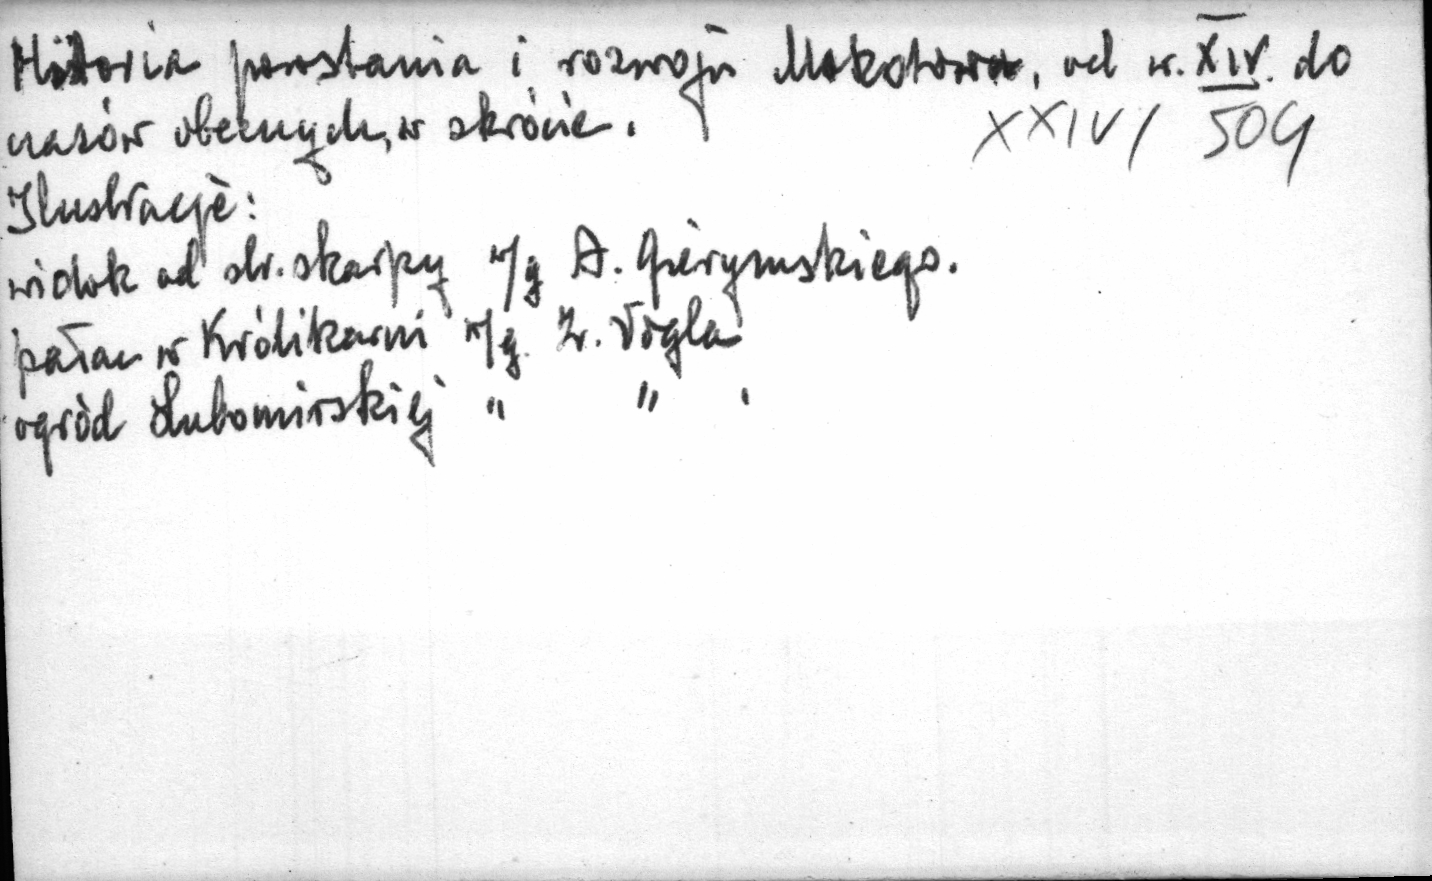 Historia powstania i rozwoju Mokotowa, od w. XIV. do
czasów obecnych, w skrócie.
XXIV/ 504
Ilustracje:
widok od str. skarpy w/g A. Gierymskiego.
pałac w Królikarni w/g. Z. Vogla
ogród Lubomirskiej " " .